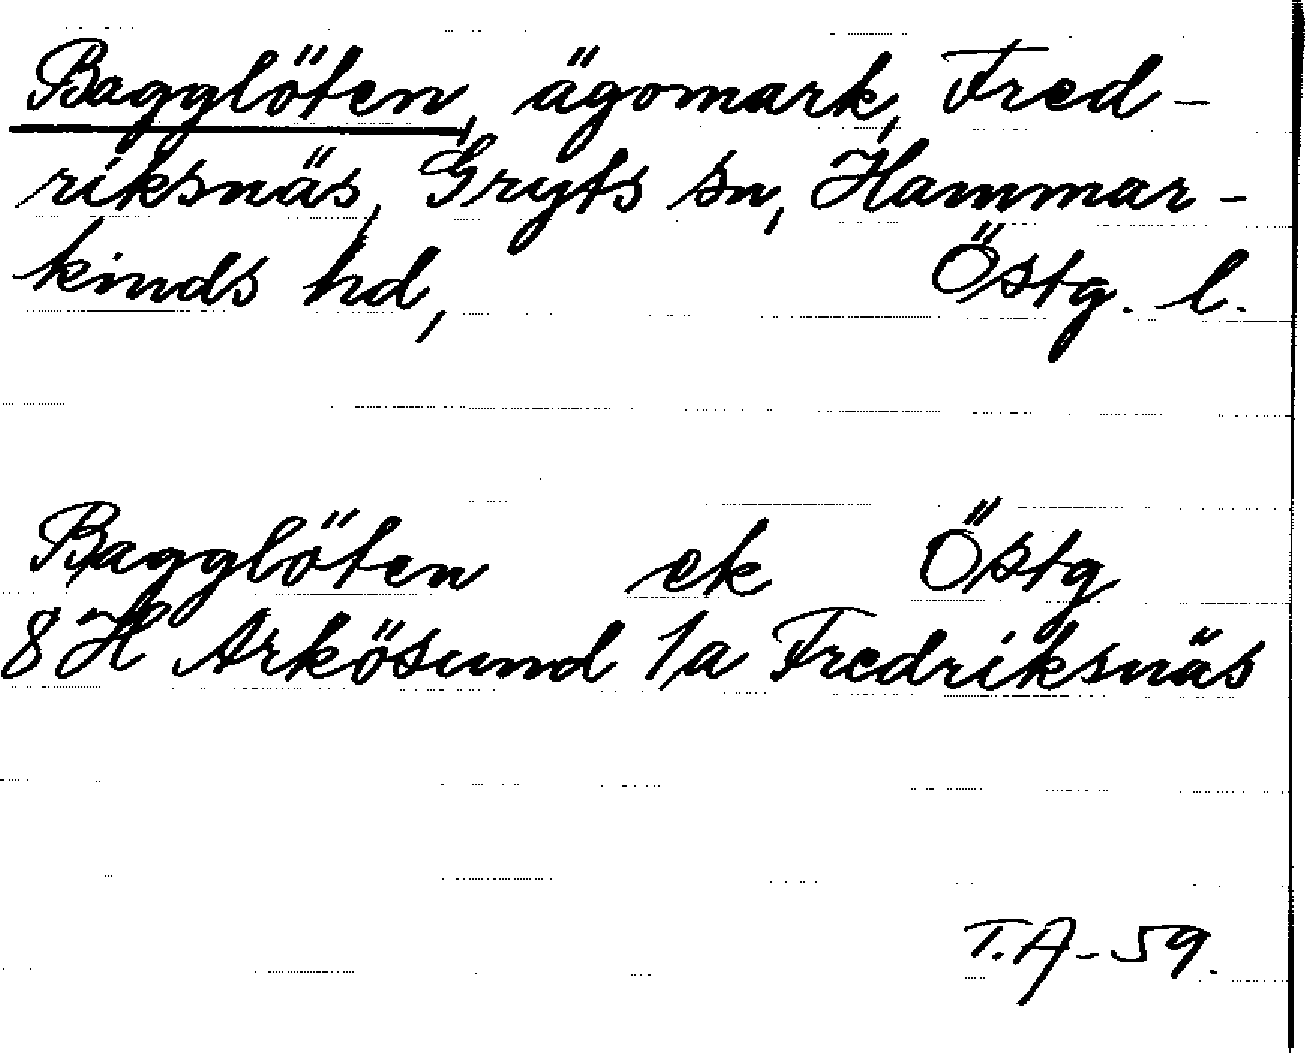 Bagglöten, ägomark, Fred-
riksnäs, Gryts sn, Hammar-
kinds hd, Östg. l.
Bagglöten ek Östg
8 H Arkösund 1a Fredriksnäs
T.A-59.